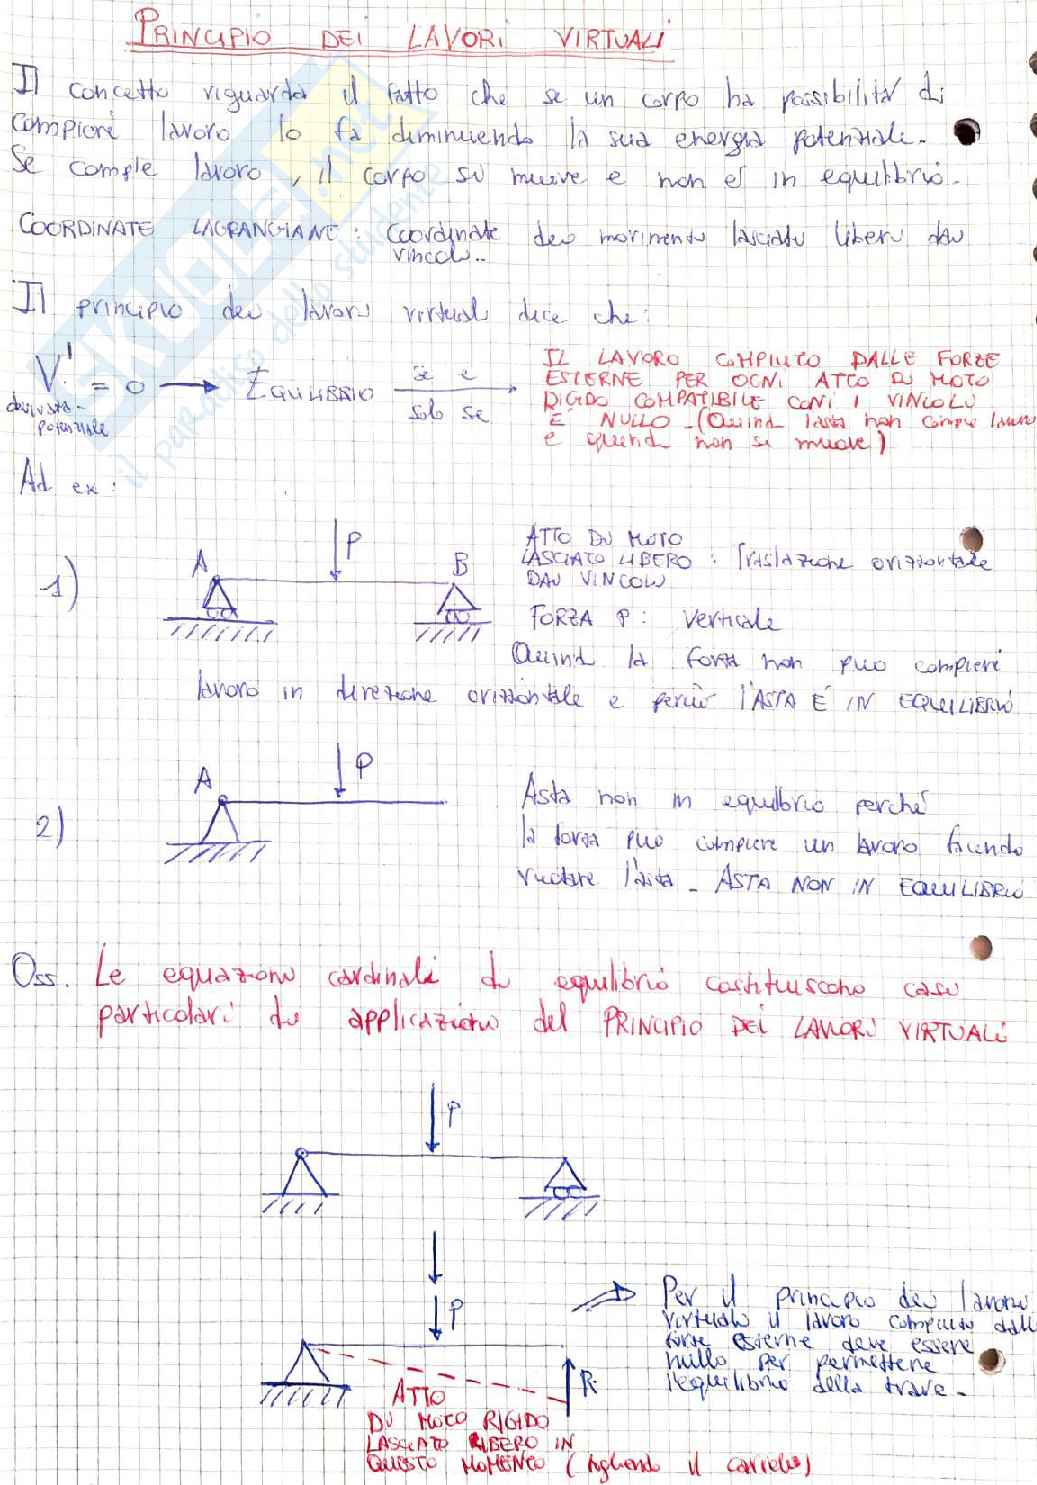 PRINCIPIO DEI LAVORI VIRTUALI
Il concetto riguarda il fatto che se un corpo ha possibilità di
compiere lavoro lo fa diminuendo la sua energia potenziale.
Se compie lavoro, il corpo si muove e non è in equilibrio.
COORDINATE LAGRANGIANE: Coordinate dei movimenti lasciati liberi dai
vincoli..
Il principio dei lavori virtuali dice che:
V' = 0 → EQUILIBRIO se e solo se
derivata potenziale
IL LAVORO COMPIUTO DALLE FORZE
ESTERNE PER OGNI ATTO DI MOTO
RIGIDO COMPATIBILE CON I VINCOLI
È NULLO - (Quindi l'asta non compie lavoro
e quindi non si muove)
Ad ex:
1)
A
P
B
ATTO DI MOTO
LASCIATO LIBERO : Traslazione orizzontale
DAI VINCOLI
FORZA P: Verticale
Quindi la forza non può compiere
lavoro in direzione orizzontale e perciò l'ASTA È IN EQUILIBRIO
2)
A
P
Asta non in equilibrio perché
la forza può compiere un lavoro facendo
ruotare l'asta - ASTA NON IN EQUILIBRIO
Oss. Le equazioni cardinali di equilibrio costituiscono casi
particolari di applicazioni del PRINCIPIO DEI LAVORI VIRTUALI
P
P
R
ATTO
DI MOTO RIGIDO
LASCIATO LIBERO IN
QUESTO MOMENTO (togliendo il carrello)
Per il principio dei lavori
virtuali il lavoro compiuto dalle
forze esterne deve essere
nullo per permettere
l'equilibrio della trave.
SKUOLA.net
il paradiso dello studente